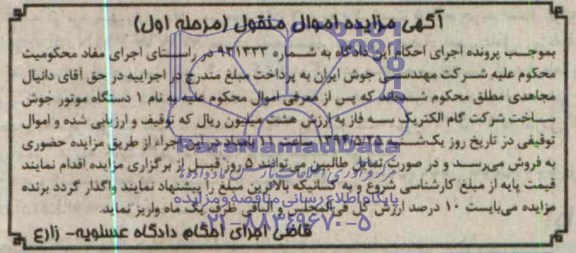 آگهی مزایده اموال منقول (مرحله اول)
بموجب پرونده اجرای احکام این دادگاه به شماره ۹۳۱۳۳۳ در راستای اجرای مفاد محکومیت
محکوم علیه شرکت مهندسی جوش ایران به پرداخت مبلغ مندرج در اجراییه در حق آقای دانیال
مجاهدی مطلق محکوم شده‌اند که پس از معرفی اموال محکوم علیه به نام ۱ دستگاه موتور جوش
ساخت شرکت گام الکتریک سه فاز به ارزش هشت میلیون ریال که توقیف و ارزیابی شده و اموال
توقیفی در تاریخ روز یک‌شنبه ۱۳۹۴/۵/۲۵ ساعت ۱۱ اجرا از طریق مزایده حضوری
به فروش می‌رسد و در صورت تمایل طالبین می‌توانند ۵ روز قبل از برگزاری مزایده اقدام نمایند
قیمت پایه از مبلغ کارشناسی شروع و به کسانیکه بالاترین مبلغ را پیشنهاد نمایند واگذار گردد برنده
مزایده می‌بایست ۱۰ درصد ارزش کل فی‌المجلس و الباقی ظرف یک ماه واریز نماید
قاضی اجرای احکام دادگاه عسلویه- زارع
ParsNamadData
پایگاه اطلاع رسانی مناقصه و مزایده
۰۲۱-۸۸۳۴۹۶۷۰-۵